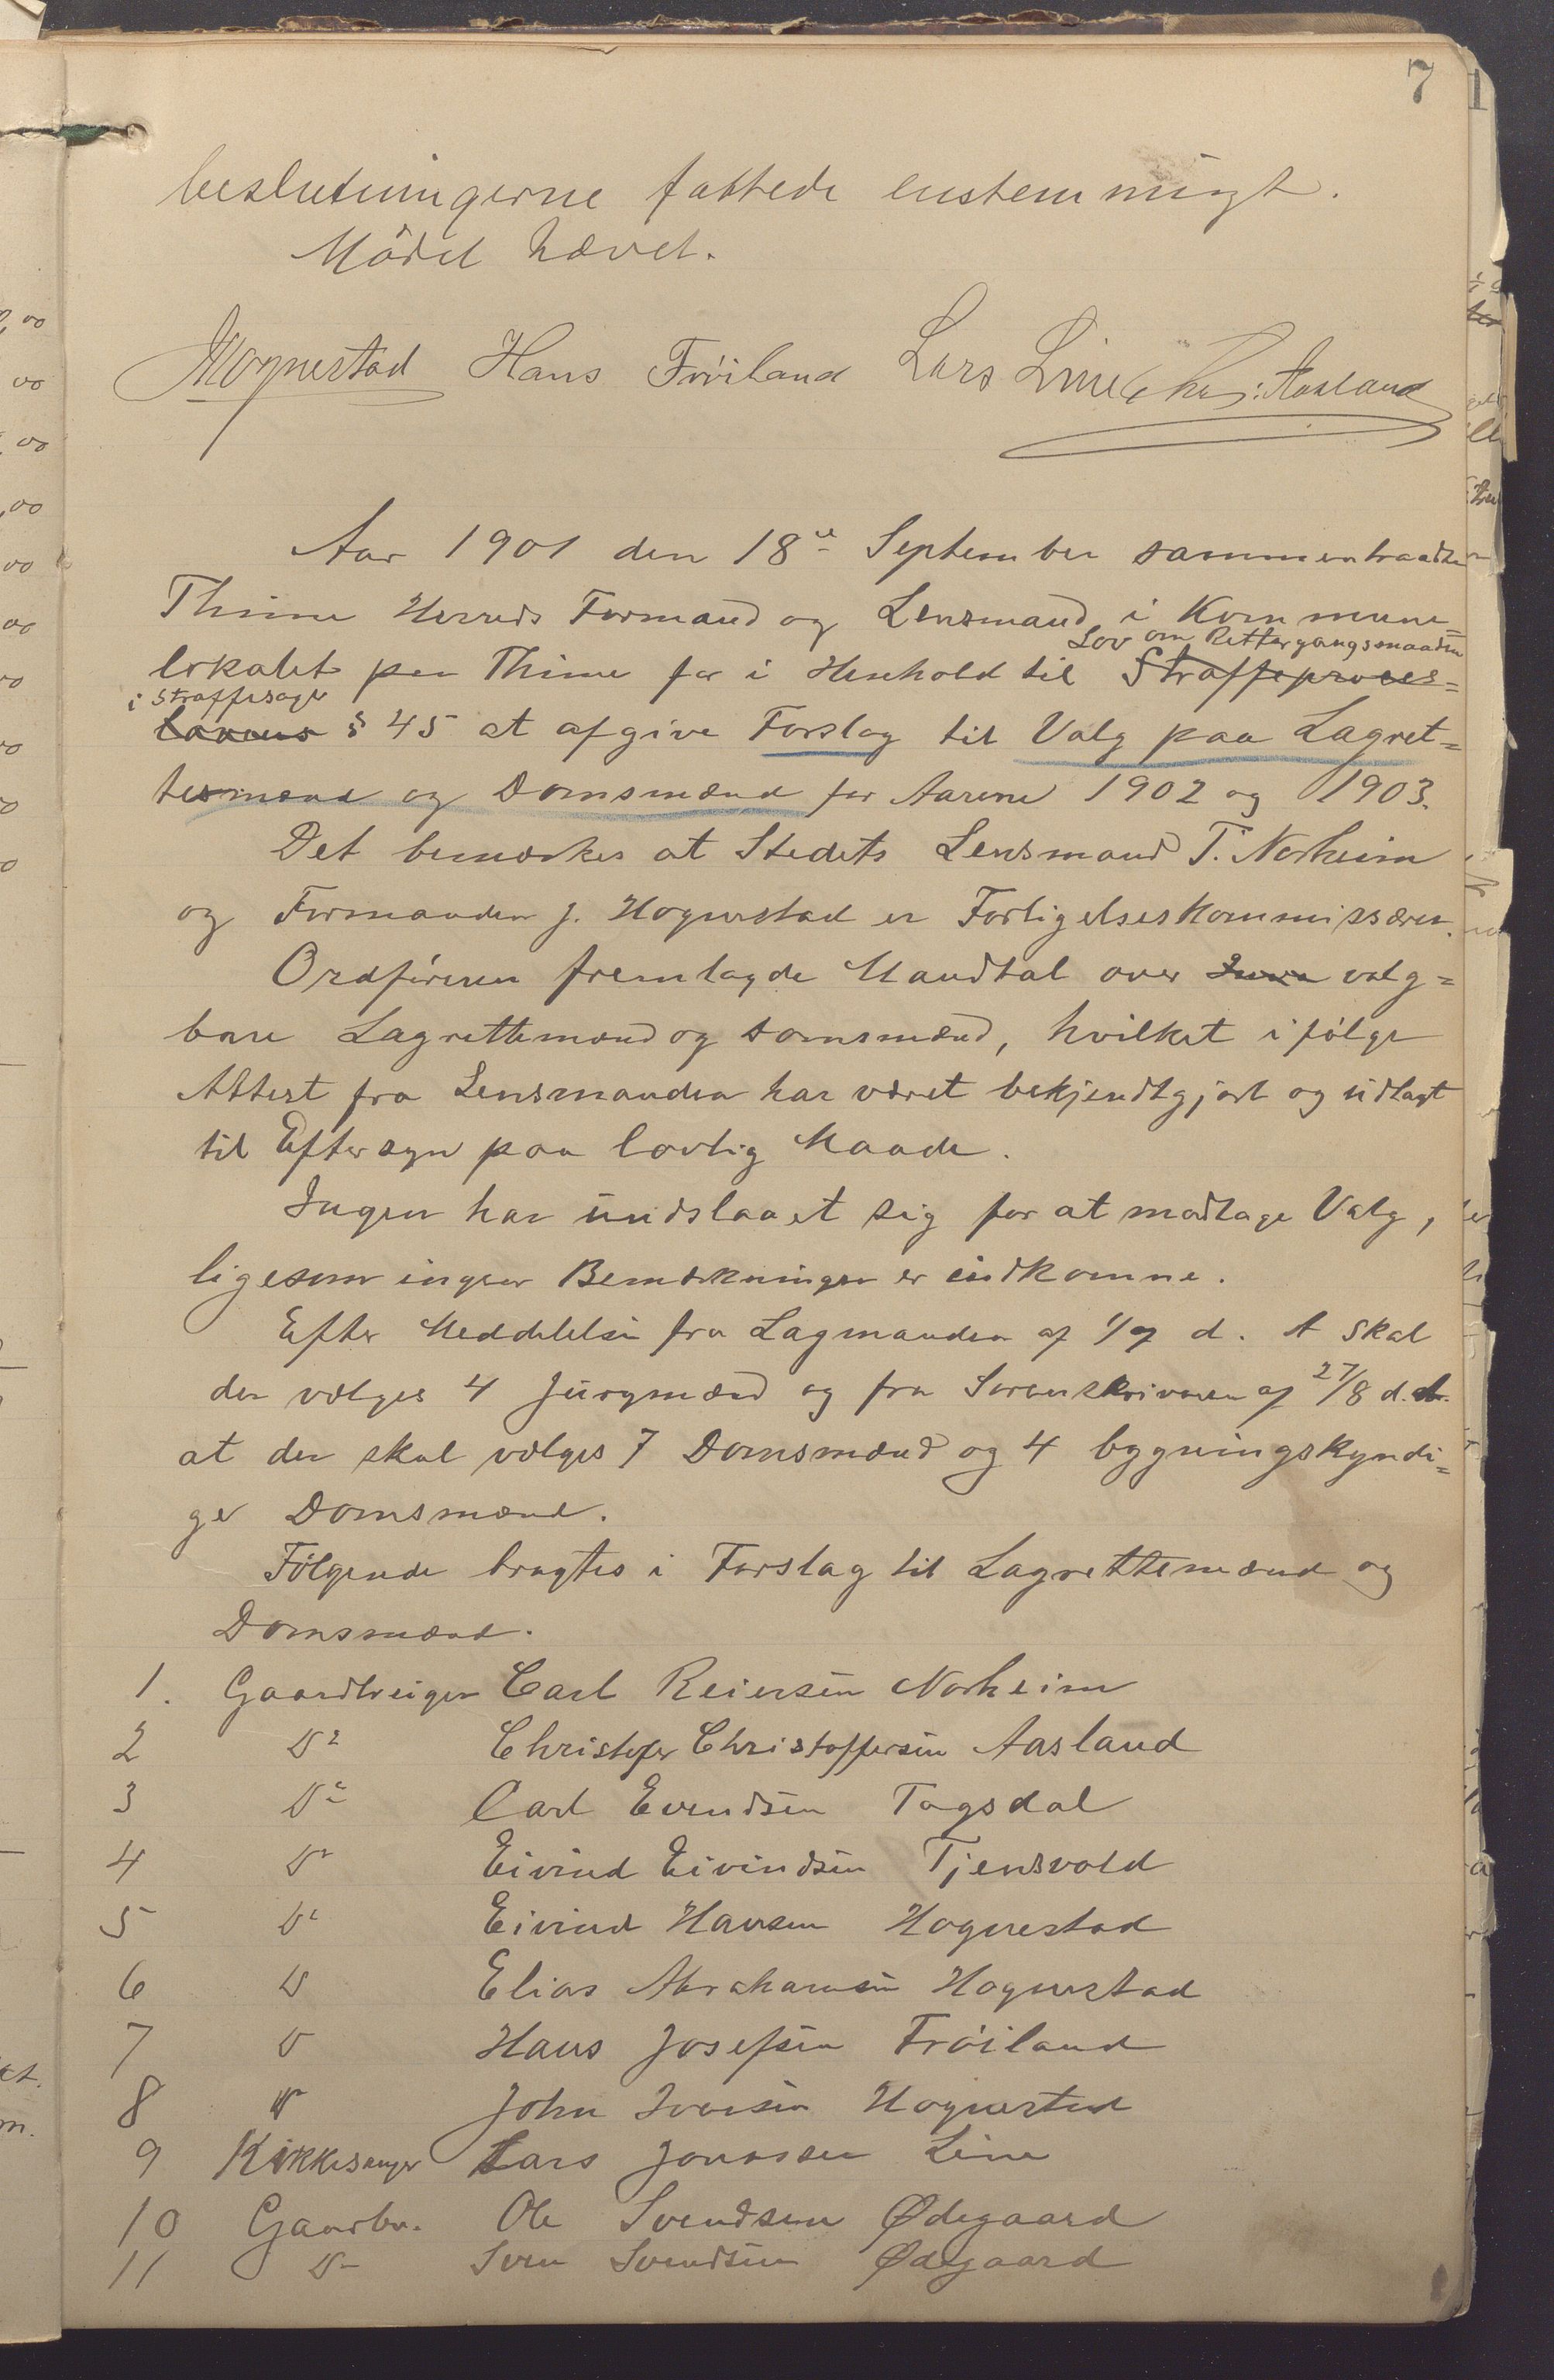 7
beslutningerne fattede enstemmigt.
Mödet hævet.
Hognestad Hans Fröiland Lars Line Chr: Aasland
Aar 1901 den 18de September sammentraadte
Thime Herreds Formand og Lensmand i Kommune=
Lov om Rettergangsmaaden
lokalet paa Thime for i Henhold til Straffeproces=
i Straffesager
lovens § 45 at afgive Forslag til Valg paa Lagret=
tesmænd og Domsmænd for Aarene 1902 og 1903.
Det bemærkes at Stedets Lensmand T. Norheim
og Formanden J. Hognestad er Forligelseskommissærer.
Ordföreren fremlagde Mandtal over valg=
bare Lagrettemænd og Domsmænd, hvilket ifölge
Attest fra Lensmanden har været bekjendtgjort og udlagt
til Eftersyn paa lovlig Maade.
Ingen har undslaaet sig for at modtage Valg,
ligesom ingen Bemærkninger er indkomne.
Efter Meddelelse fra Lagmanden af 1/7 d. A skal
der vælges 4 Jurymænd og fra Sorenskriveren af 27/8 d.A.
at der skal vælges 7 Domsmænd og 4 bygningskyndi=
ge Domsmænd.
Fölgende bragtes i Forslag til Lagrettemænd og
Domsmænd.
1. Gaardbruger Carl Reiersen Norheim
2 Do Christofer Christoffersen Aasland
3 Do Carl Evendsen Togsdal
4 Do Eivind Eivindsen Tjensvold
5 Do Eivind Hansen Hognestad
6 Do Elias Abrahamsen Hognestad
7 Do Hans Josefsen Fröiland
8 Do John Iversen Hognestad
9 Kirkesanger Lars Jonassen Line
10 Gaardbr. Ole Svendsen Ødegaard
11 Do Sven Svendsen Ødegaard